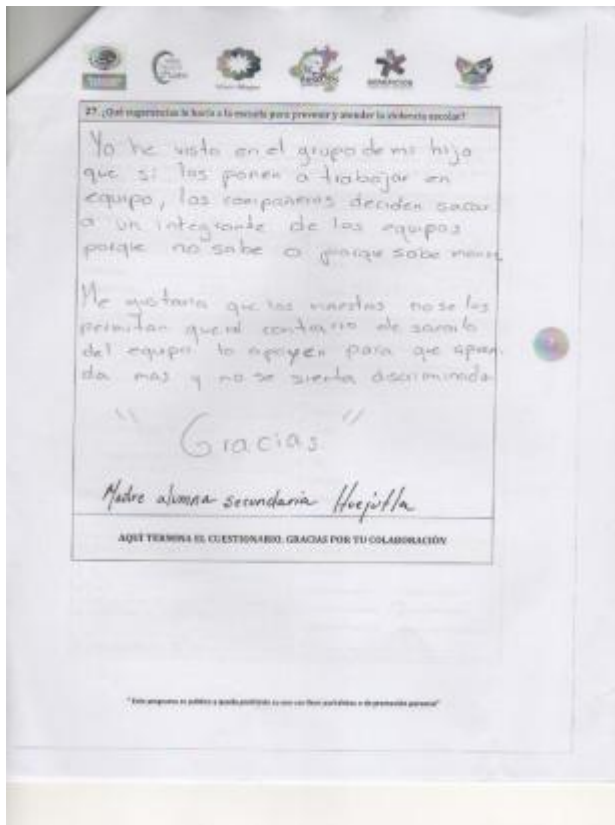 27. ¿Qué sugerencias le haría a la escuela para prevenir y atender la violencia escolar?
Yo he visto en el grupo de mi hija
que si los ponen a trabajar en
equipo, los compañeros deciden sacar
a un integrante de los equipos
porque no sabe o porque sabe menos
Me gustaria que los maestros no se los
permitan que al contrario de sacarlo
del equipo lo apoyen para que apren
da mas y no se sienta discriminado
" Gracias "
Madre alumna secundaria Huejutla
AQUÍ TERMINA EL CUESTIONARIO, GRACIAS POR TU COLABORACIÓN
"Este programa es público y queda prohibido su uso con fines partidistas o de promoción personal"